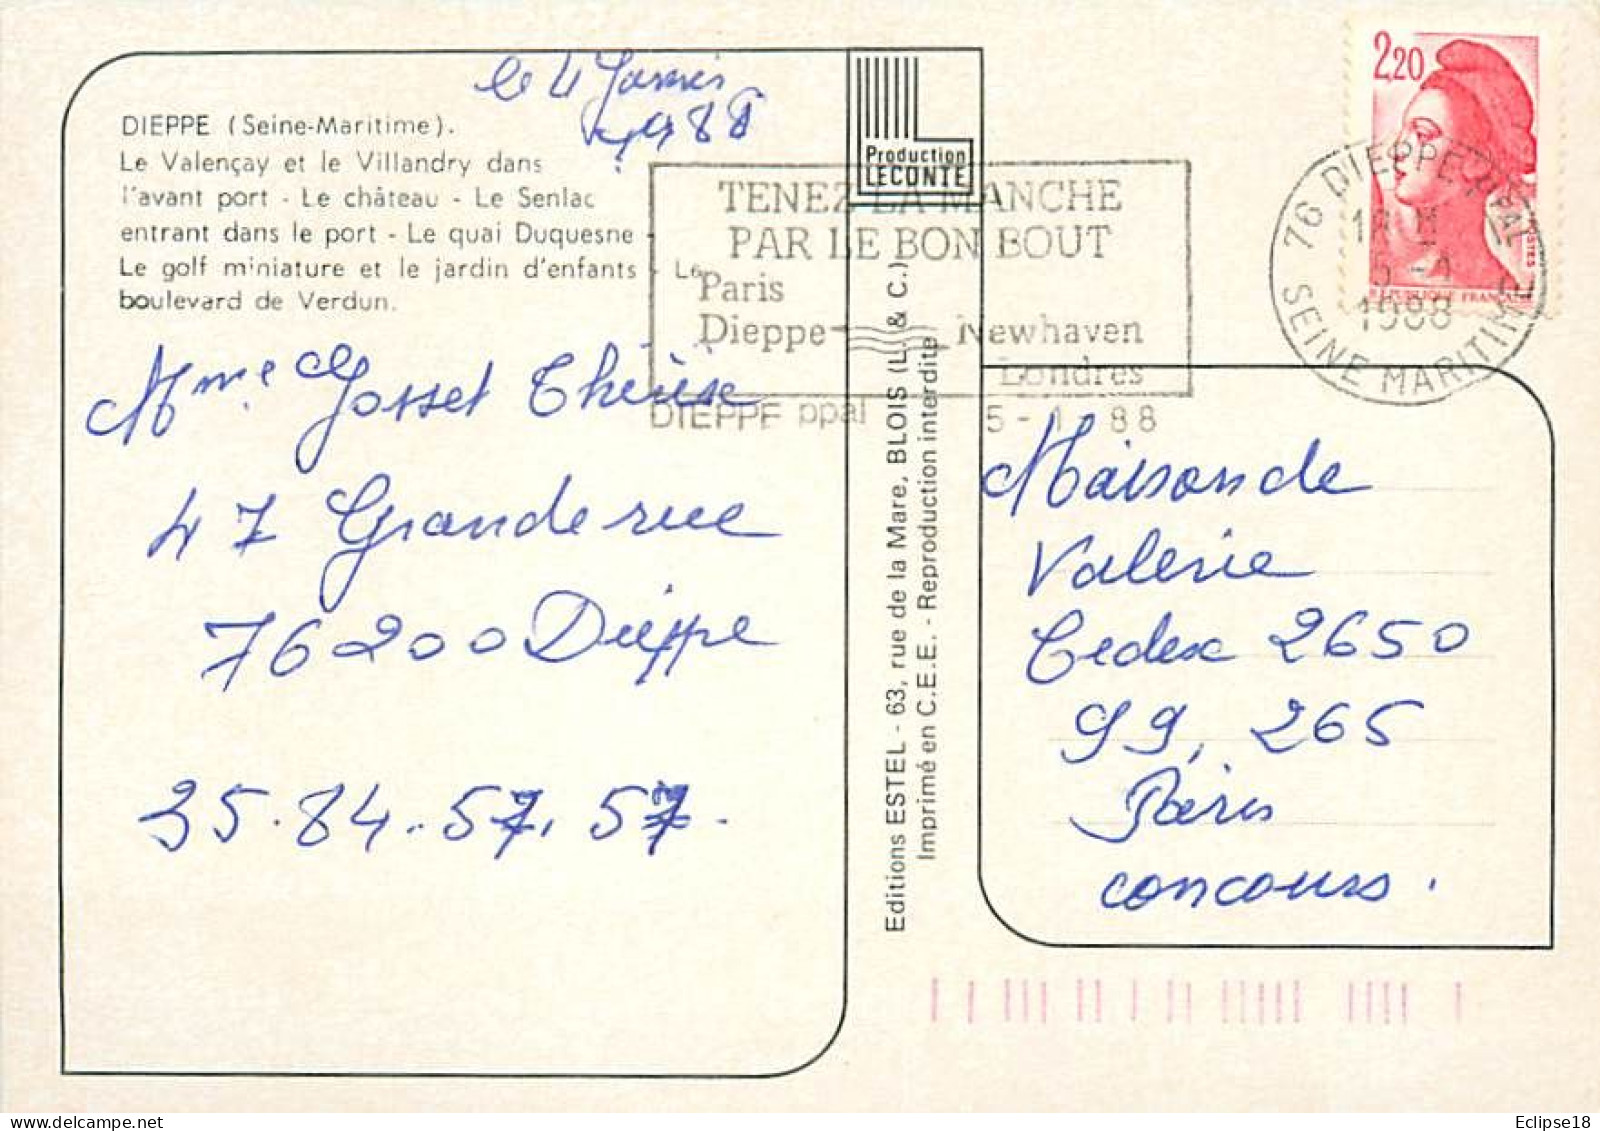 le 4 Janvier
1988
DIEPPE (Seine-Maritime).
Le Valençay et le Villandry dans
l'avant port - Le château - Le Senlac
entrant dans le port - Le quai Duquesne
Le golf miniature et le jardin d'enfants - Le
boulevard de Verdun.
Mme Josset Thérèse
47 Grande rue
76200 Dieppe
35.84.57.57.
Production
LECONTE
TENEZ LA MANCHE
PAR LE BON BOUT
Paris
Dieppe Newhaven
Londres
DIEPPE ppal 5-1 88
Editions ESTEL - 63, rue de la Mare, BLOIS (L. & C.)
Imprimé en C.E.E. - Reproduction interdite
2,20
REPUBLIQUE FRANÇAISE
POSTES
76 DIEPPE PPAL
5-1
1988
SEINE MARITIME
Maison de
Valerie
Cedex 2650
99, 265
Paris
concours.
Eclipse18